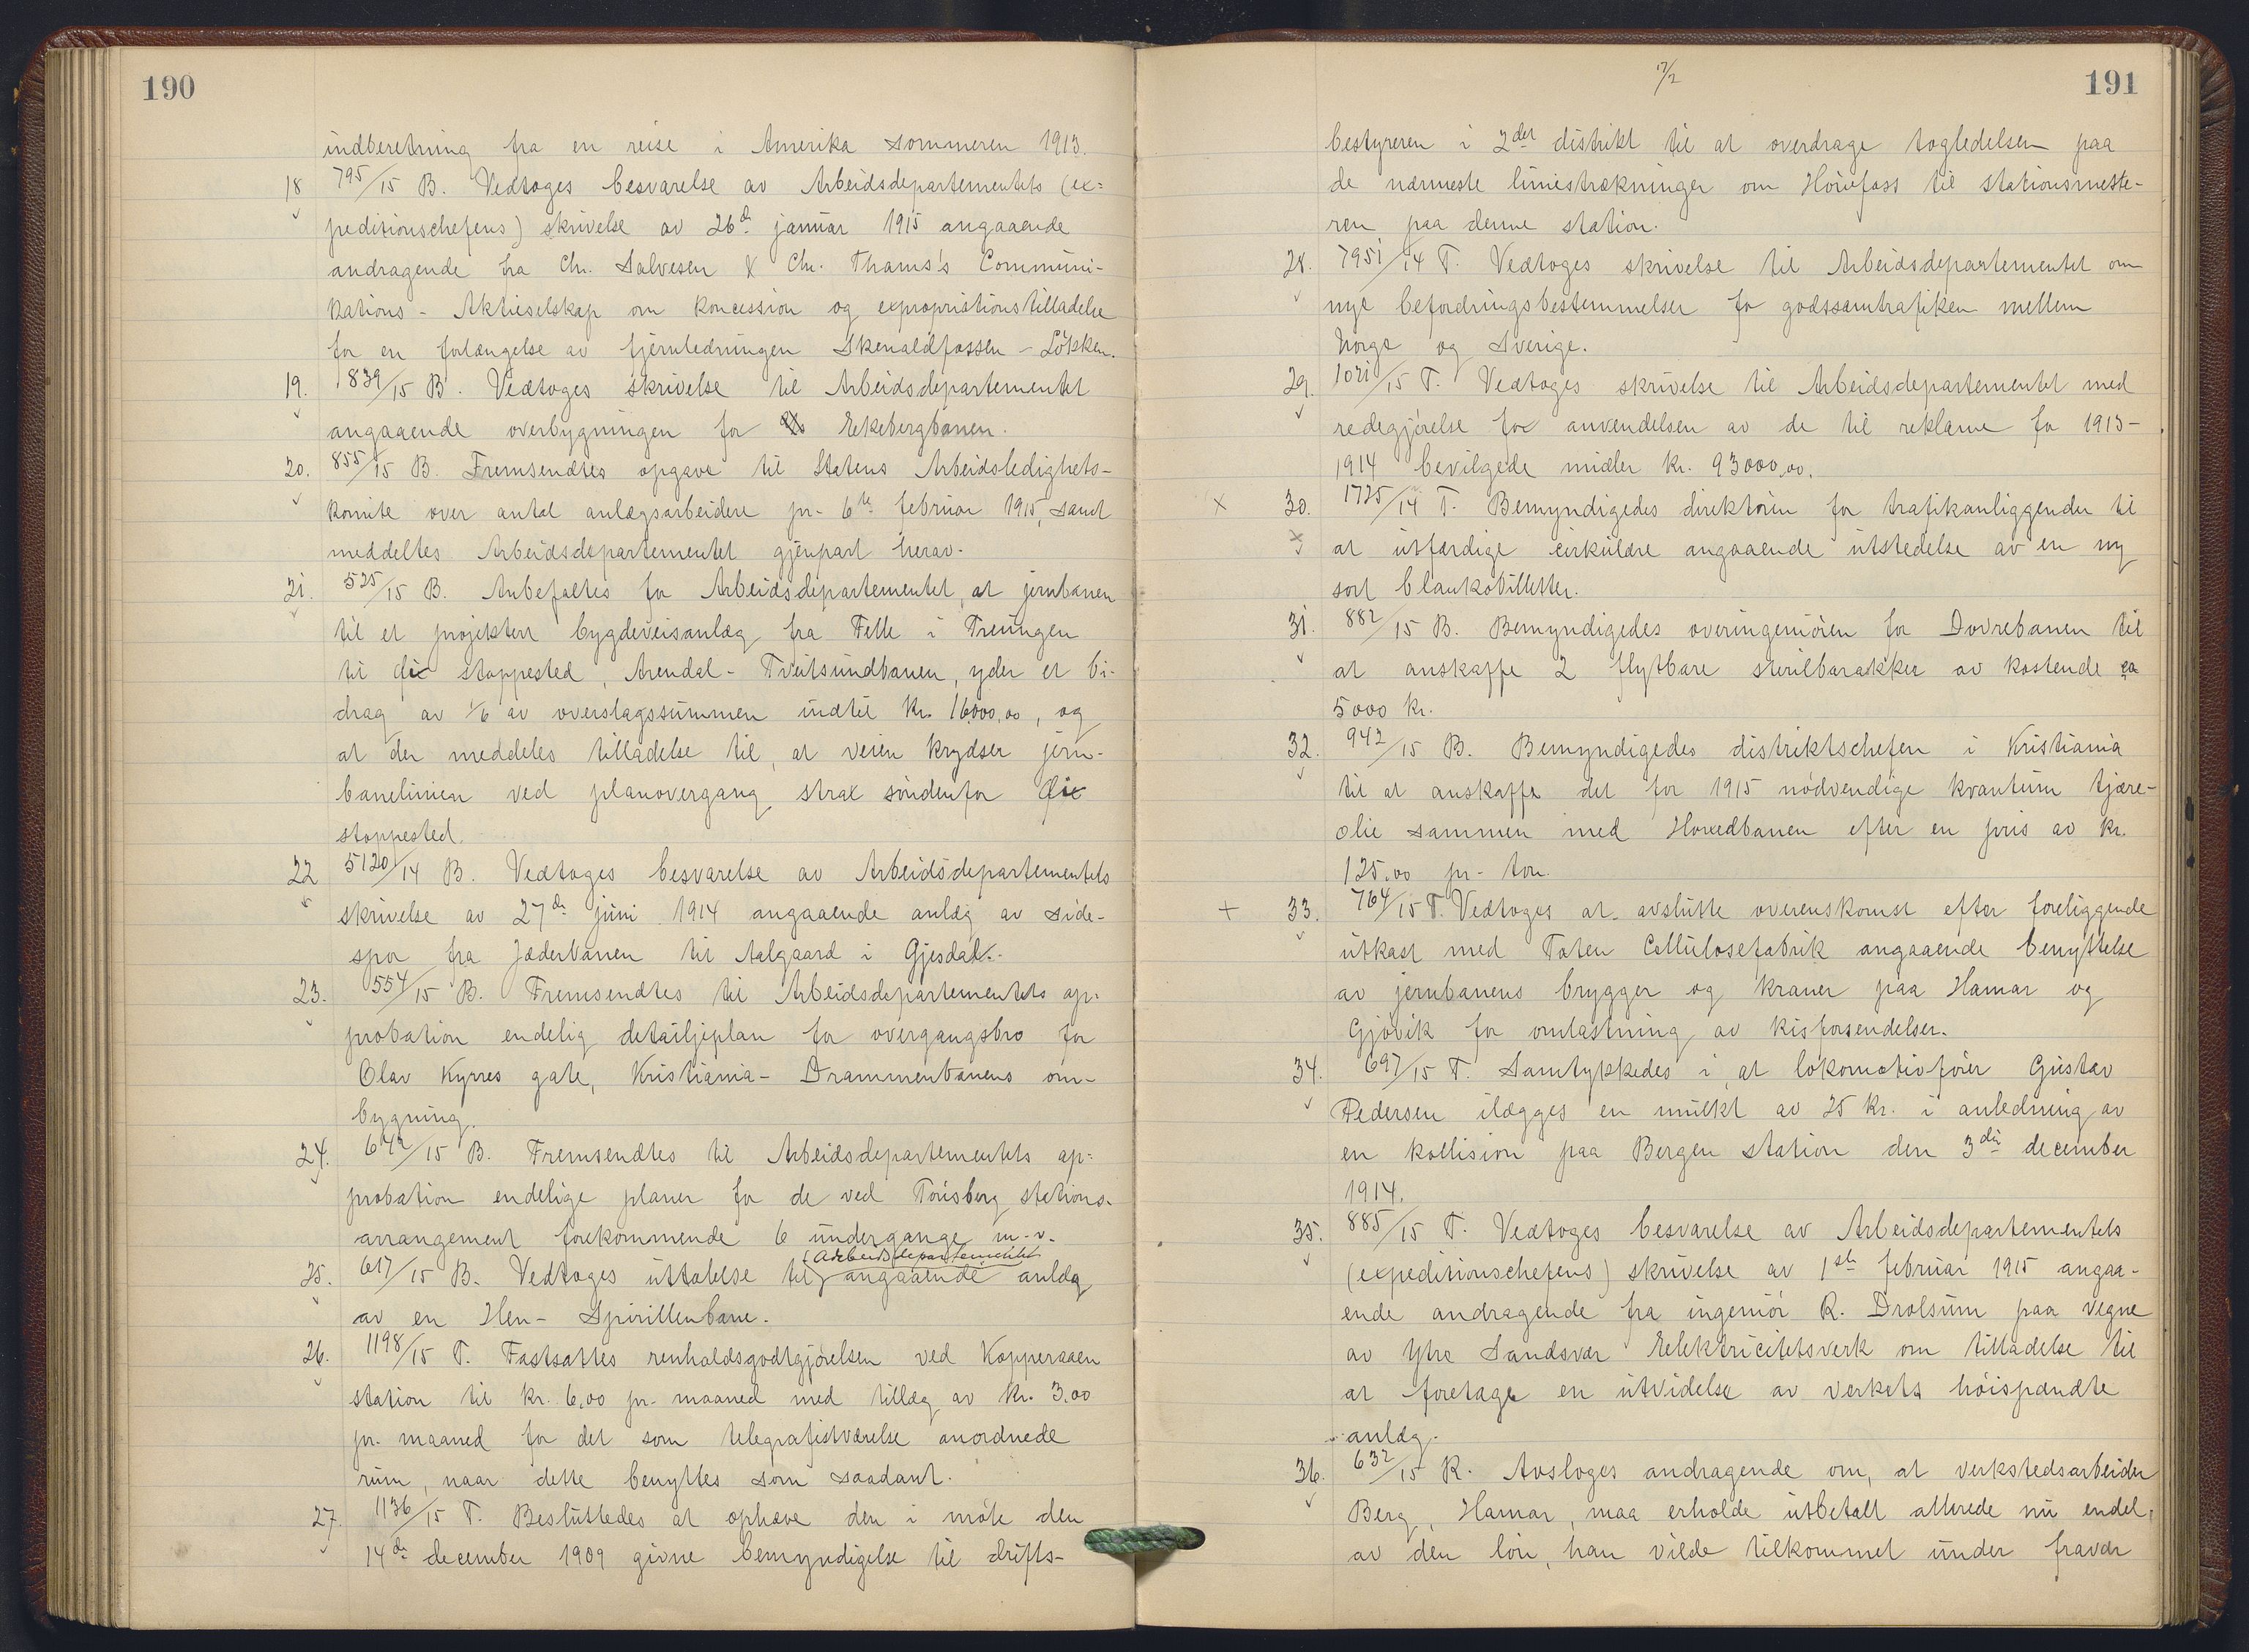 190
indberetning fra en reise i Amerika sommeren 1913.
18 795/15 B. Vedtoges besvarelse av Arbeidsdepartementets (ex=
peditionschefens) skrivelse av 26de januar 1915 angaaende
andragende fra Chr. Salvesen & Chr. Thams's Communi-
kations - Aktieselskap om koncession og expropriationstilladelse
for en forlængelse av fjernledningen Skenaldfossen - Løkken.
19. 839/15 B. Vedtoges skrivelse til Arbeidsdepartementet
angaaende overbygningen for Ekebergbanen.
20. 855/15 B. Fremsendtes opgave til Statens Arbeidsledighets-
komite over antal anlægsarbeidere pr. 6te februar 1915, samt
meddeltes Arbeidsdepartementet gjenpart herav.
21. 525/15 B. Anbefaltes for Arbeidsdepartementet, at jernbanen
til et projektert bygdeveisanlæg fra Felle i Treungen
til stoppested, Arendal - Tveitsundbanen, yder et bi-
drag av 1/6 av overslagssummen indtil kr. 16000,00, og
at der meddeles tilladelse til, at veien krydser jern-
banelinien ved planovergang strax søndenfor
stoppested.
22 5120/14 B. Vedtoges besvarelse av Arbeidsdepartementets
skrivelse av 27de juni 1914 angaaende anlæg av side-
spor fra Jæderbanen til Aalgaard i Gjesdal.
23. 554/15 B. Fremsendtes til Arbeidsdepartementets ap-
probation endelig detailjeplan for overgangsbro for
Olav Kyrres gate, Kristiania - Drammenbanens om-
bygning.
24. 642/15 B. Fremsendtes til Arbeidsdepartementets ap=
probation endelige planer for de ved Tønsberg stations-
arrangement forekommende 6 undergange m.v.
Arbeidsdepartementet
25. 617/15 B. Vedtoges uttalelse til angaaende anlæg
av en Hen - Spirillenbane.
26. 1198/15 T. Fastsattes renholdsgodtgjørelsen ved Kopperaaen
station til kr. 6,00 pr. maaned med tillæg av kr. 3,00
pr. maaned for det som telegrafistværelse anordnede
rum, naar dette benyttes som saadant.
27. 1136/15 T. Besluttedes at ophæve den i møte den
14de december 1909 givne bemyndigelse til drifts-
17/2
191
bestyreren i 2det distrikt til at overdrage togledelsen paa
de nærmeste liniestrækninger om Hønefoss til stationsmeste-
ren paa denne station.
28. 7951/14 T. Vedtoges skrivelse til Arbeidsdepartementet om
nye befordringsbestemmelser for godssamtrafiken mellem
Norge og Sverige.
29. 1021/15 T. Vedtoges skrivelse til Arbeidsdepartementet med
redegjørelse for anvendelsen av de til reklame for 1913-
1914 bevilgede midler kr. 93000,00.
x 30. 1725/14 T. Bemyndigedes direktøren for trafikanliggender til
at utfærdige cirkulære angaaende utstedelse av en ny
sort blankobilletter.
31. 882/15 B. Bemyndigedes overingeniøren for Dovrebanen til
at anskaffe 2 flytbare sterilbarakker av kostende ca
5000 kr.
32. 942/15 B. Bemyndigedes distriktschefen i Kristiania
til at anskaffe det for 1915 nødvendige kvantum tjære-
olie sammen med Hovedbanen efter en pris av kr.
125.00 pr. ton.
+ 33. 764/15 T. Vedtoges at avslutte overenskomst efter foreliggende
utkast med Toten Cellulosefabrik angaaende benyttelse
av jernbanens brygger og kraner paa Hamar og
Gjøvik for omlastning av kisforsendelser.
34. 697/15 T. Samtykkedes i, at lokomotivfører Gustav
Pedersen ilægges en mulkt av 25 kr. i anledning av
en kollision paa Bergen station den 3die december
1914.
35. 885/15 T. Vedtoges besvarelse av Arbeidsdepartementets
(expeditionschefens) skrivelse av 1ste februar 1915 angaa-
ende andragende fra ingeniør R. Drolsum paa vegne
av Ytre Sandsvær Elektricitetsverk om tilladelse til
at foretage en utvidelse av verkets høispændte
anlæg.
36. 632/15 R. Avsloges andragende om, at verkstedsarbeider
Berg, Hamar, maa erholde utbetalt allerede nu endel
av den løn, han vilde tilkommet under fravær